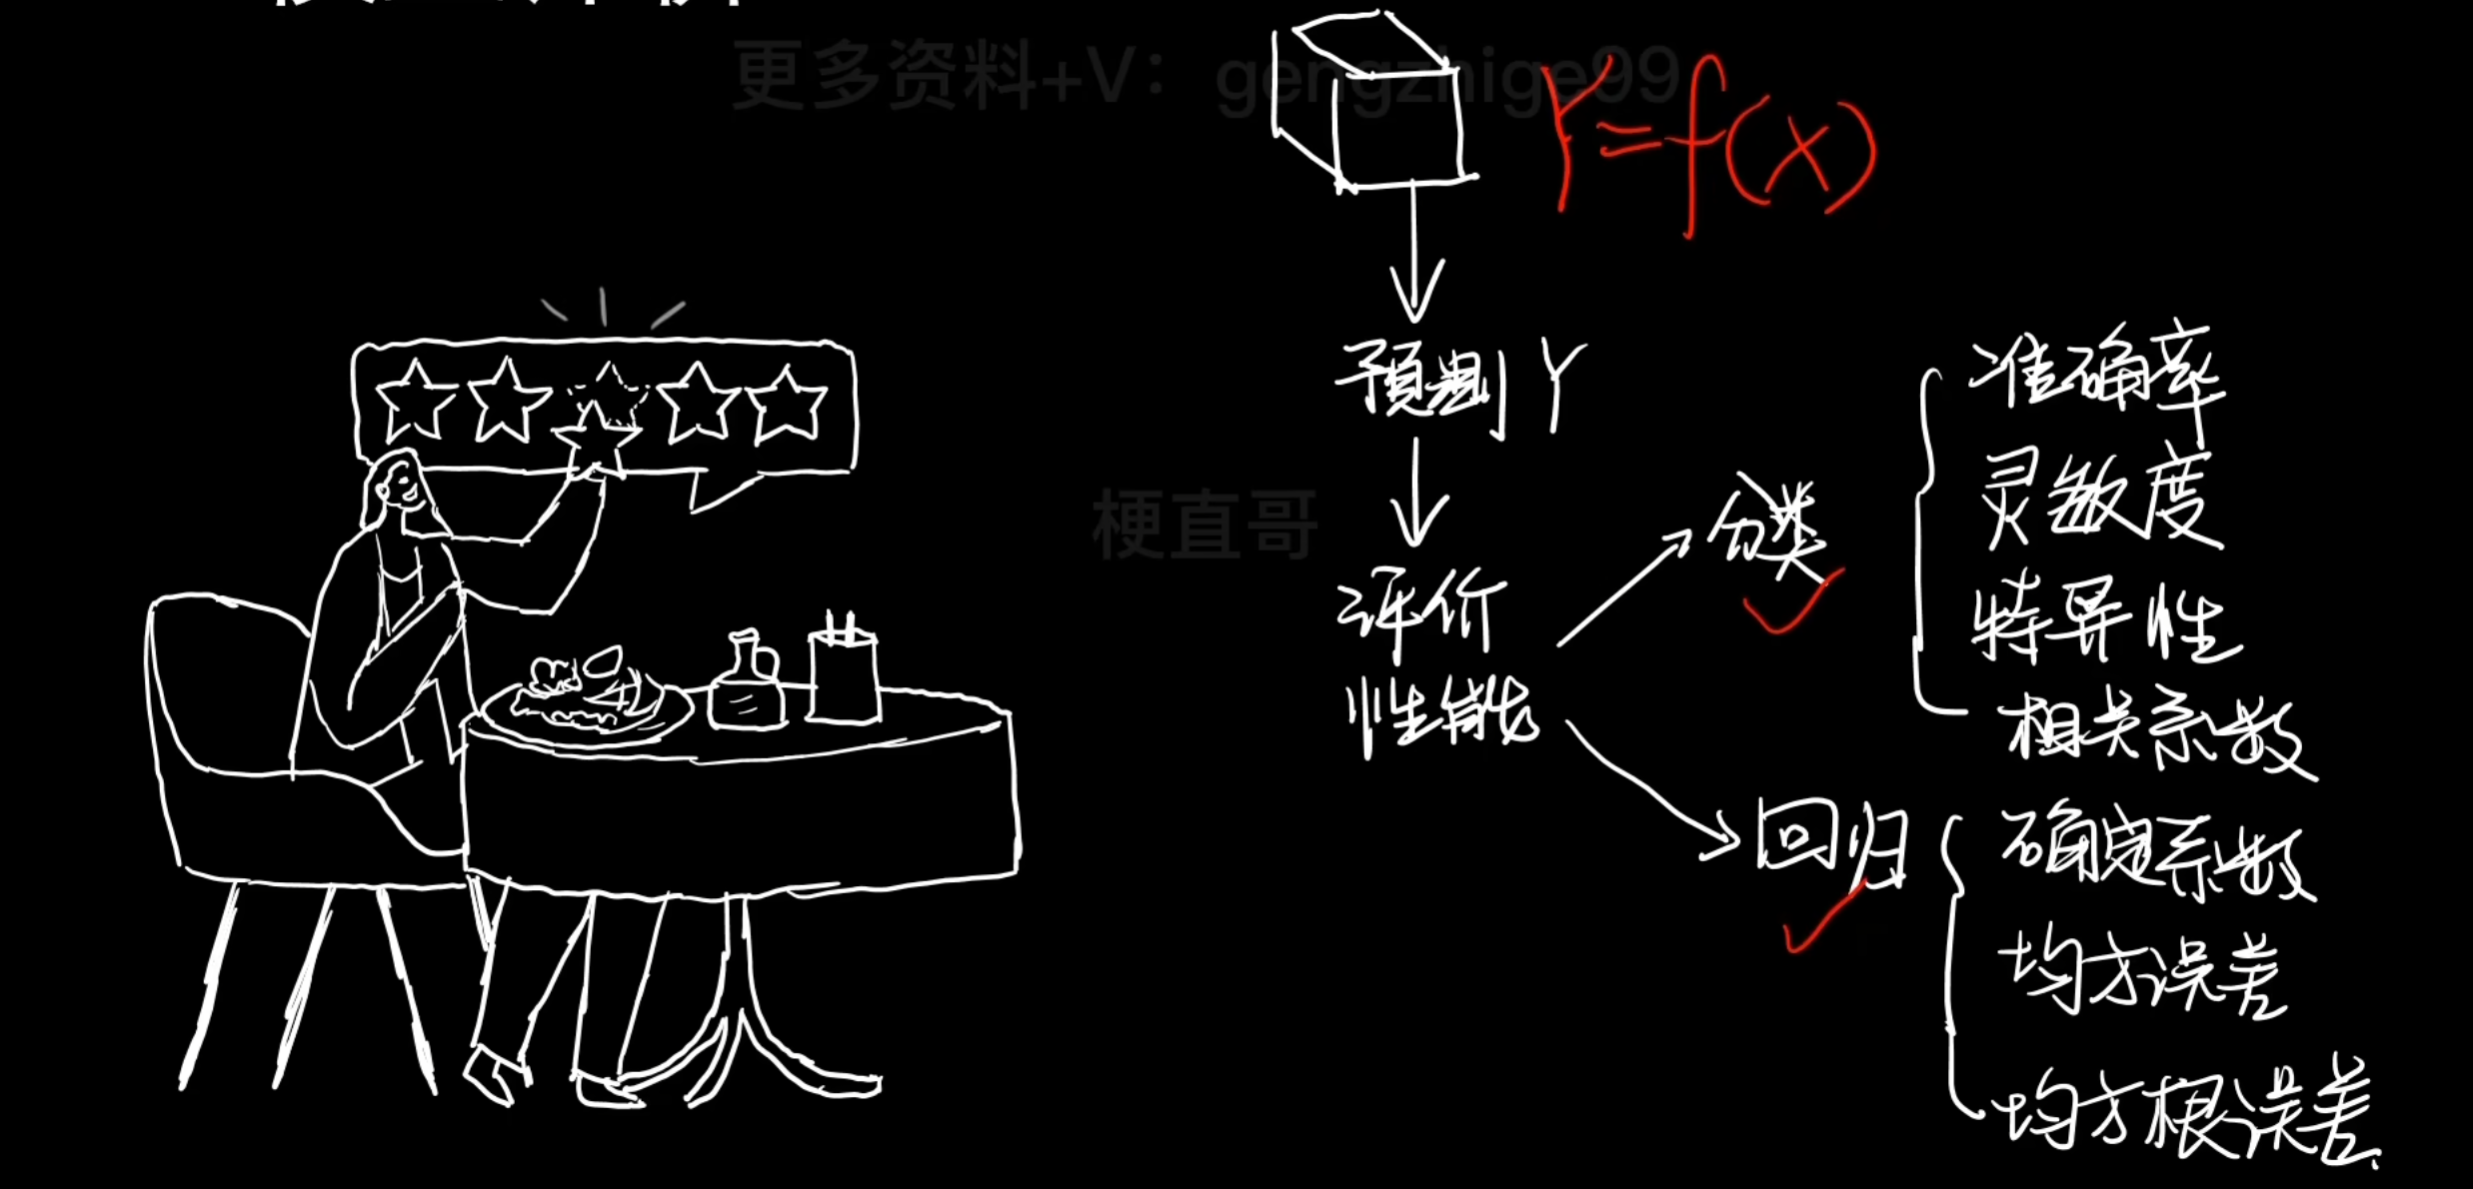 更多资料+V：gengzhige99
Y=f(x)
预测Y
梗直哥
评价
性能
分类
准确率
灵敏度
特异性
相关系数
回归
确定系数
均方误差
均方根误差